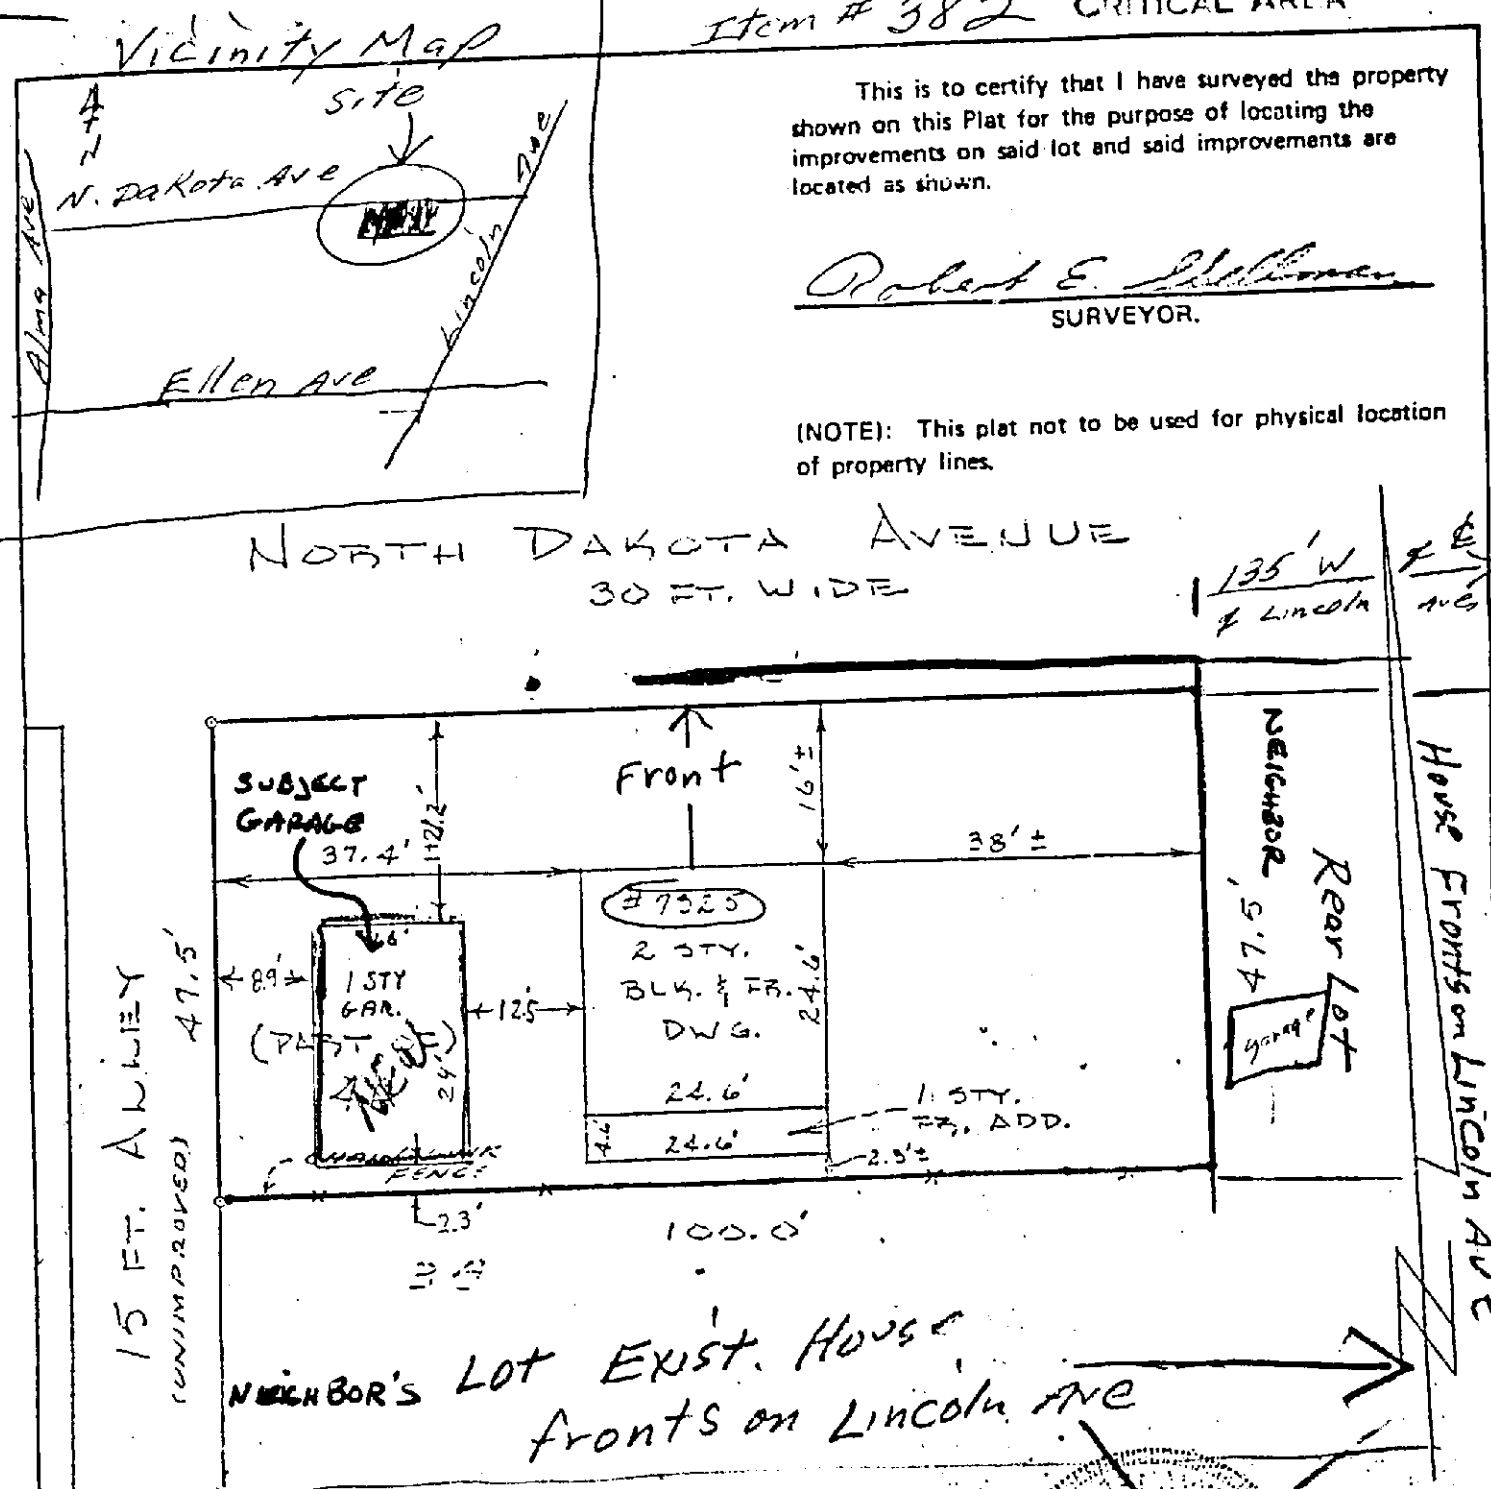 Vicinity Map
Item # 382 CRITICAL AREA
N
Site
N. Dakota Ave
Alma Ave
Lincoln Ave
Ellen Ave
This is to certify that I have surveyed the property
shown on this Plat for the purpose of locating the
improvements on said lot and said improvements are
located as shown.
Robert E.
SURVEYOR.
(NOTE): This plat not to be used for physical location
of property lines.
NORTH DAKOTA AVENUE
30 FT. WIDE
135' W
Lincoln
Ave
SUBJECT
GARAGE
37.4'
Front
16'±
38'±
#7325
2 STY.
BLK. & FR.
DWG.
24.6'
24.6'
24.6'
4.6'
1 STY.
FR. ADD.
2.3'±
8.9'
16'
1 STY
GAR.
(PART OF)
24'
12.5
FENCE
2.3'
100.0'
15 FT. ALLEY
(UNIMPROVED)
47.5'
NEIGHBOR
47.5'
Rear Lot
garage
House Fronts on Lincoln Ave
NEIGHBOR'S Lot Exist. House
fronts on Lincoln Ave